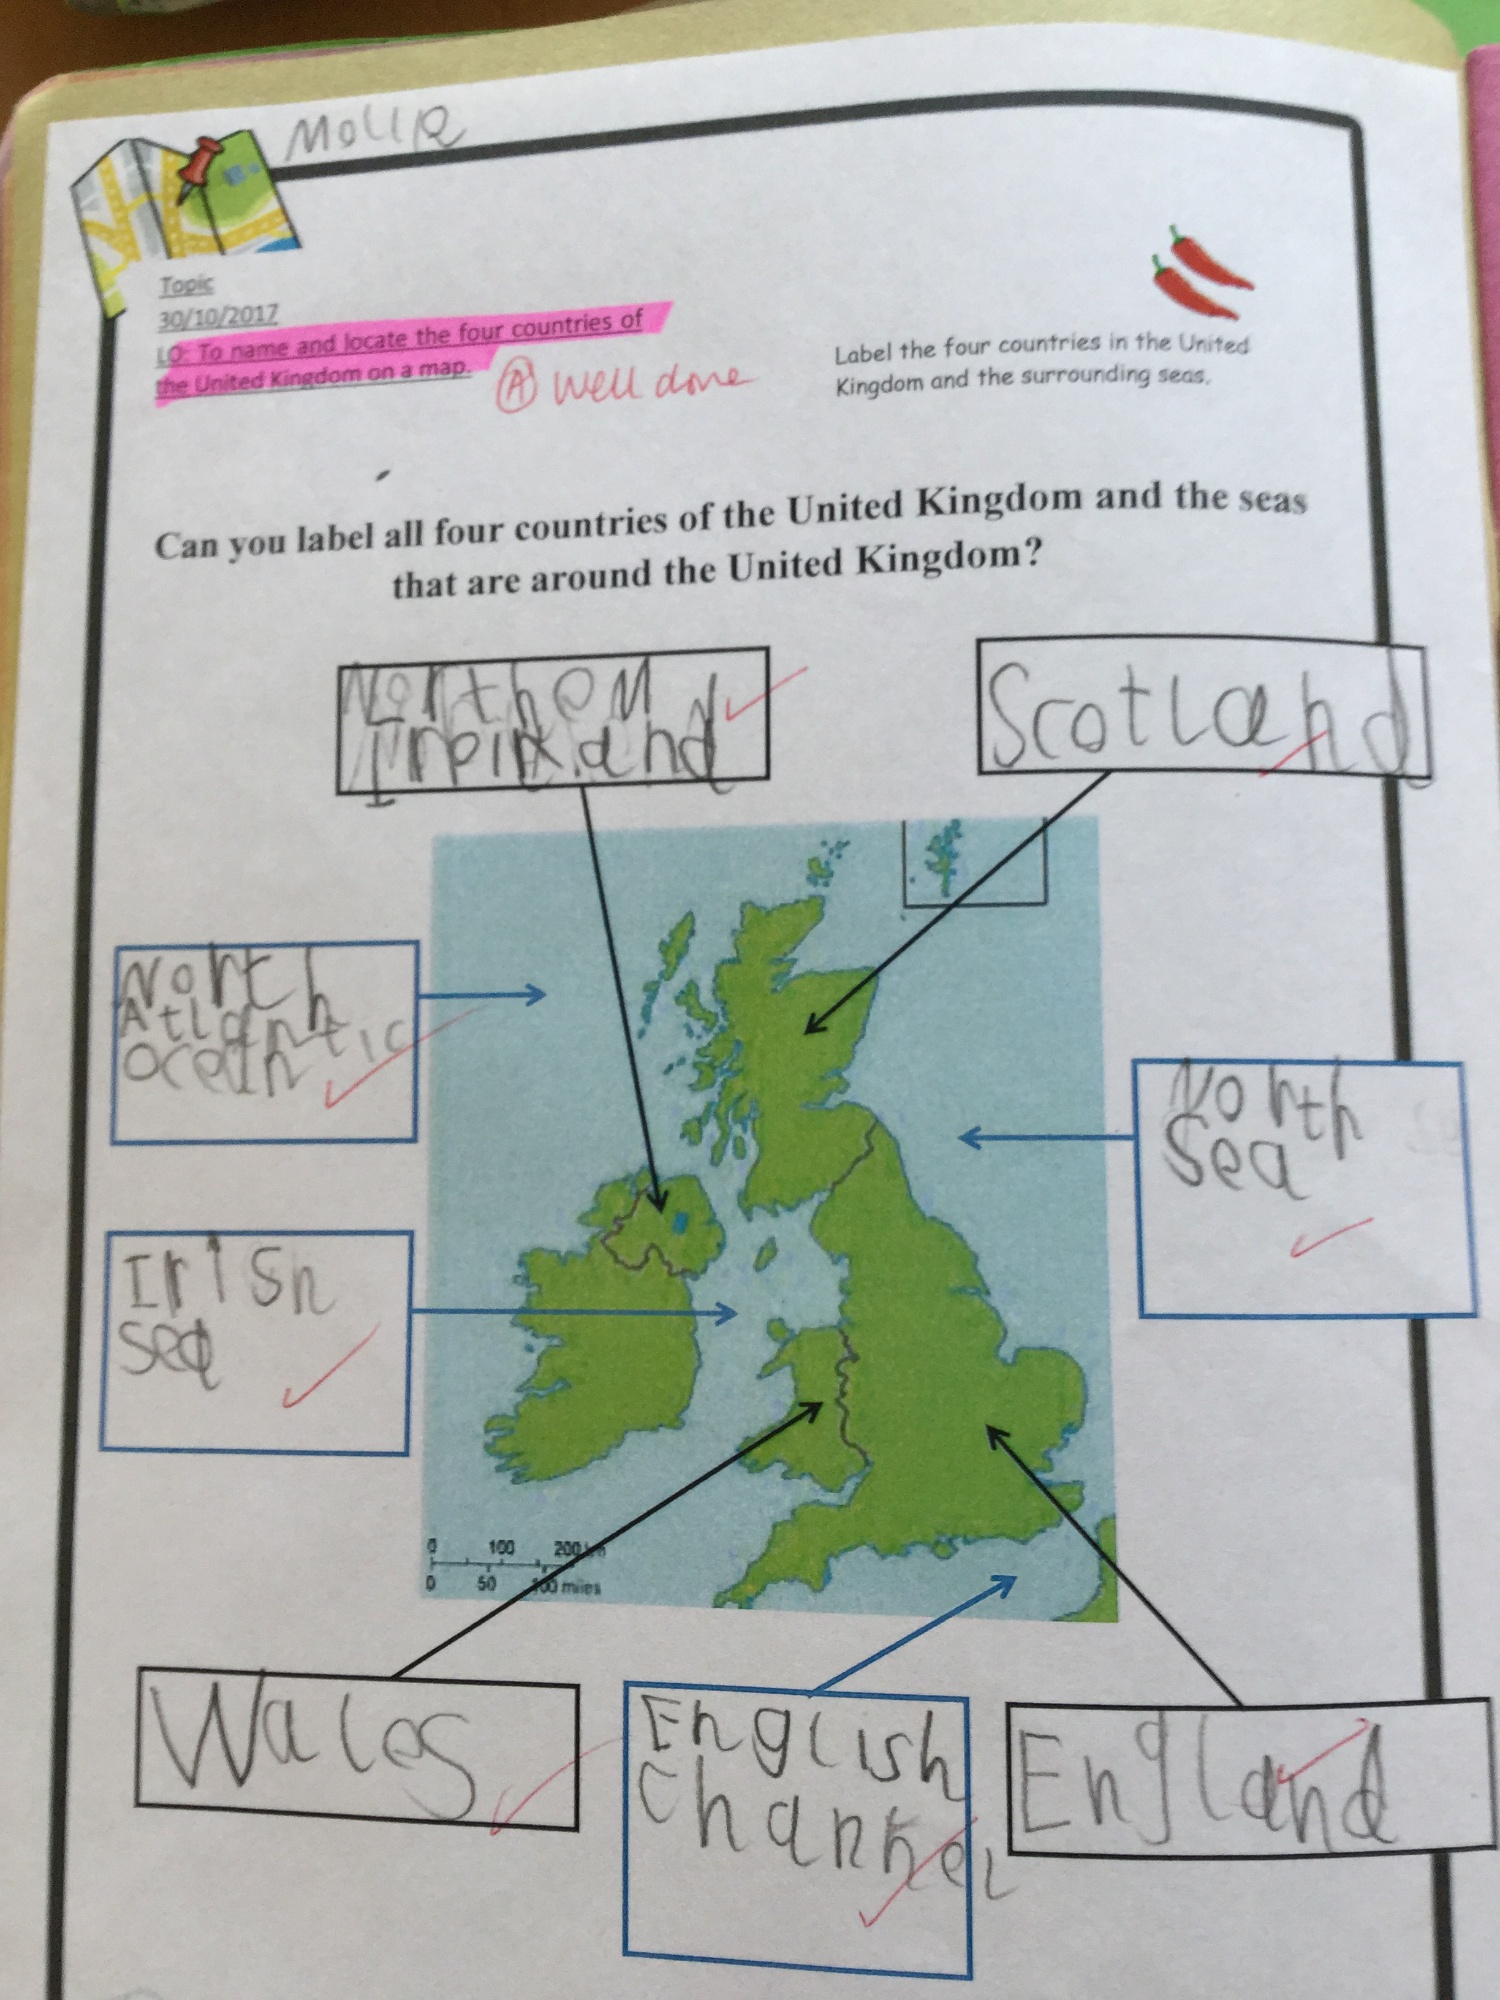 Mollie
Topic
30/10/2017
LO: To name and locate the four countries of
the United Kingdom on a map.
A Well done
Label the four countries in the United
Kingdom and the surrounding seas.
Can you label all four countries of the United Kingdom and the seas
that are around the United Kingdom?
Northern
Ireland
Scotland
North
Atlantic
Ocean
North
Sea
Irish
Sea
0 100 200 km
0 50 100 miles
Wales
English
Channel
England